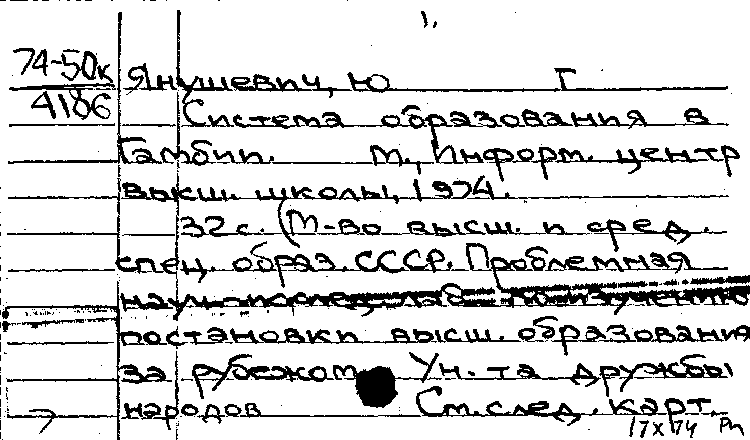 1.
74-50к Янушевич, Ю Г
4186 Система образования в
Гамбии. М., Информ. центр
высш. школы, 1974.
32 с. (М-во высш. и сред.
спец. образ. СССР. Проблемная
науч.-исслед. лаб. по изучению
постановки высш. образования
за рубежом Ун-та дружбы
народов См. след. карт.
17 X 74